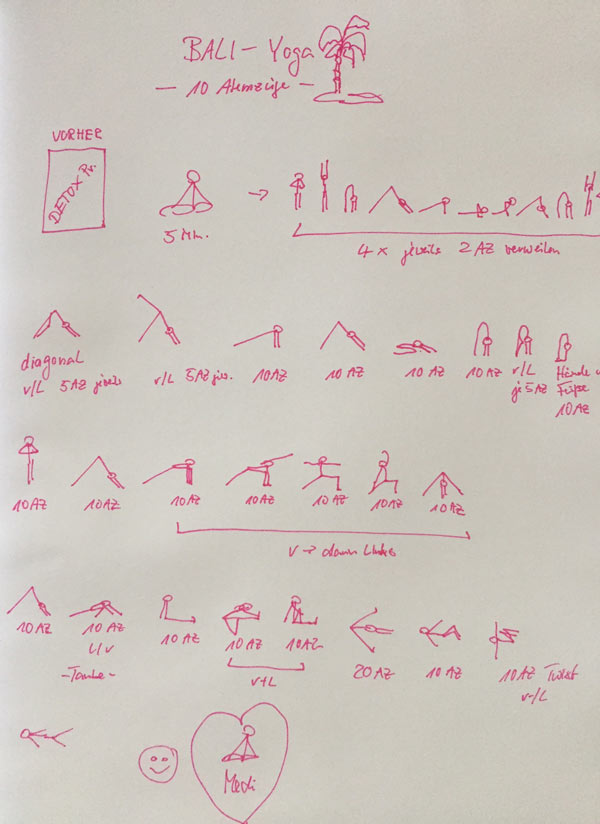 BALI - Yoga
- 10 Atemzüge -
VORHER
DETOX Pr.
5 Min.
4 x jeweils 2 AZ verweilen
diagonal
r/L 5 AZ jeweils
r/L 5 AZ jew.
10 AZ
10 AZ
10 AZ
10 AZ
r/L
je 5 AZ
Hände
Füße
10 AZ
10 AZ
10 AZ
10 AZ
10 AZ
10 AZ
10 AZ
10 AZ
r → dann Links
10 AZ
10 AZ
L/r
- Taube -
10 AZ
10 AZ
10 AZ
r + L
20 AZ
10 AZ
10 AZ Twist
r-/L
Medi